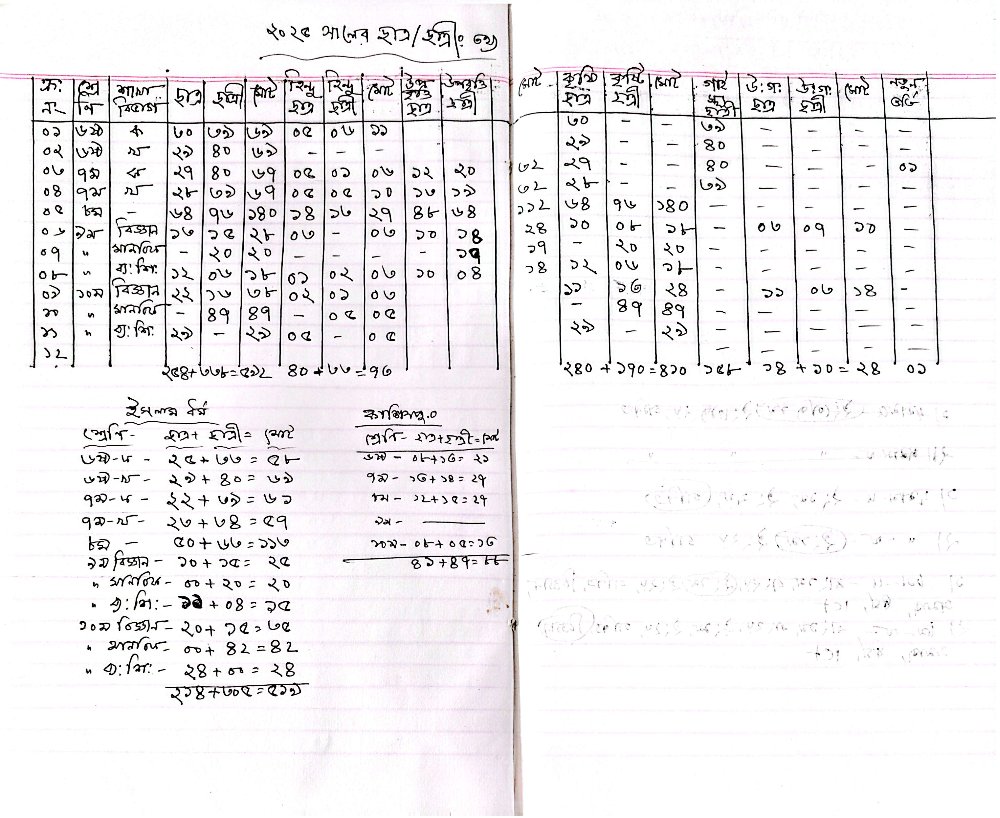 ২০২৫ সালের ছাত্র/ছাত্রী: তথ্য
ক্র: নং শ্রেণি শাখা বিভাগ ছাত্র ছাত্রী মোট হিন্দু ছাত্র হিন্দু ছাত্রী মোট উপবৃত্তি ছাত্র উপবৃত্তি ছাত্রী মোট কৃষি ছাত্র কৃষি ছাত্রী মোট গার্হ ছাত্রী উ:গ: ছাত্র উ:গ: ছাত্রী মোট নতুন ভর্তি
০১ ৬ষ্ঠ ক ৩০ ৩৯ ৬৯ ০৫ ০৬ ১১ ৩০ - - ৩৯ - - - -
০২ ৬ষ্ঠ খ ২৯ ৪০ ৬৯ - - - ২৯ - - ৪০ - - - -
০৩ ৭ম ক ২৭ ৪০ ৬৭ ০৫ ০১ ০৬ ১২ ২০ ৩২ ২৭ - - ৪০ - - - ০১
০৪ ৭ম খ ২৮ ৩৯ ৬৭ ০৫ ০৫ ১০ ১৩ ১৯ ৩২ ২৮ - - ৩৯ - - - -
০৫ ৮ম - ৬৪ ৭৬ ১৪০ ১৪ ১৩ ২৭ ৪৮ ৬৪ ১১২ ৬৪ ৭৬ ১৪০ - - - - -
০৬ ৯ম বিজ্ঞান ১৩ ১৫ ২৮ ০৩ - ০৩ ১০ ১৪ ২৪ ১০ ০৮ ১৮ - ০৩ ০৭ ১০ -
০৭ " মানবিক - ২০ ২০ - - - ১৭ ১৭ - ২০ ২০ - - - - -
০৮ " ব্য: শি: ১২ ০৬ ১৮ ০১ ০২ ০৩ ১০ ০৪ ১৪ ১২ ০৬ ১৮ - - - - -
০৯ ১০ম বিজ্ঞান ২২ ১৬ ৩৮ ০২ ০১ ০৩ ১১ ১৩ ২৪ - ১১ ০৩ ১৪ -
১০ " মানবিক - ৪৭ ৪৭ - ০৫ ০৫ - ৪৭ ৪৭ - - - - -
১১ " ব্য: শি: ২৯ - ২৯ ০৫ - ০৫ ২৯ - ২৯ - - - - -
১২ - - - -
২৫৪+৩৩৮=৫৯২ ৪০+৩৩=৭৩ ২৪০+১৭০=৪১০ ১৫৮ ১৪+১০=২৪ ০১
ইসলাম ধর্ম
শ্রেণি- ছাত্র+ ছাত্রী= মোট
৬ষ্ঠ-ক - ২৫+৩৩ = ৫৮
৬ষ্ঠ-খ - ২৯+৪০ = ৬৯
৭ম-ক - ২২+৩৯ = ৬১
৭ম-খ - ২৩+৩৪ = ৫৭
৮ম - ৫০+৬৩=১১৩
৯ম বিজ্ঞান - ১০+১৫= ২৫
" মানবিক- ০০+২০= ২০
" ব্য: শি:- ১১+০৪= ১৫
১০ম বিজ্ঞান- ২০+১৫=৩৫
" মানবিক- ০০+৪২=৪২
" ব্য: শি: - ২৪+০০= ২৪
২১৪+৩০৫=৫১৯
শ্রেণি- ছাত্র+ছাত্রী=মোট
৬ষ্ঠ - ০৮+১৩= ২১
৭ম - ১৩+১৪=২৭
৮ম - ১২+১৫=২৭
৯ম -
১০ম - ০৮+০৫=১৩
৪১+৪৭=৮৮